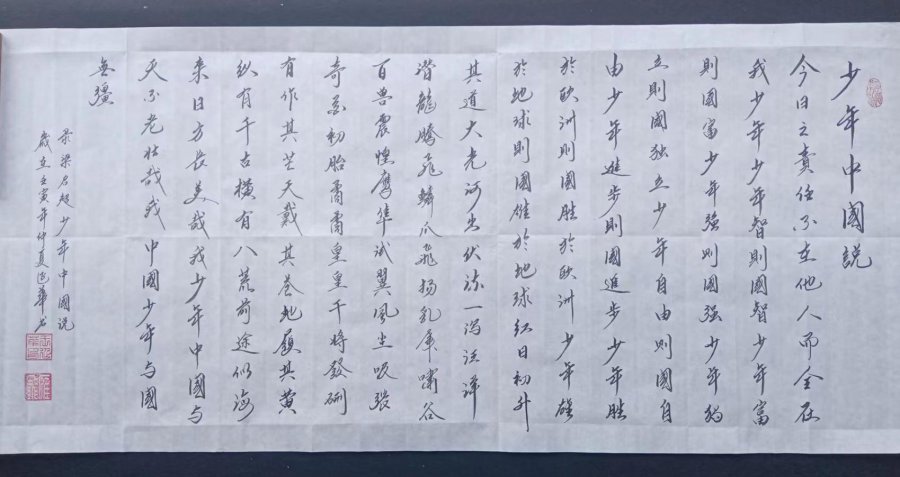 少年中國説
今日之責任不在他人而全在
我少年少年智則國智少年富
則國富少年强則國强少年独
立則國独立少年自由則國自
由少年進步則國進步少年胜
於欧洲則國胜於欧洲少年雄
於地球則國雄於地球红日初升
其道大光河出伏流一泻汪洋
潜龍腾飛鳞爪飛扬乳虎啸谷
百兽震惶鷹隼试翼風尘吸張
奇花初胎矞矞皇皇干将發硎
有作其芒天戴其苍地履其黄
纵有千古横有八荒前途似海
来日方長美哉我少年中國与
天不老壮哉我中國少年与國
無疆
录梁启超少年中國说
歲在壬寅年仲夏